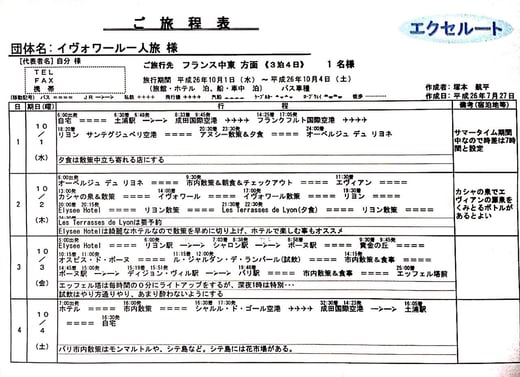 ご 旅 程 表
エクセルート
団体名：イヴォワール一人旅 様
[代表者名] 自分 様
ＴＥＬ
ＦＡＸ
携 帯
ご旅行先 フランス中東 方面 《３泊４日》 １ 名様
旅行期間 平成26年10月1日（水） ～ 平成26年10月4日（土）
（旅館・ホテル 泊、船・車中 泊） バス車種
作成者：塚本 航平
作成日：平成26年7月27日
(移動記号) バス ==== JR 私鉄 ++++ 飛行機 徒歩
日 期日（曜） 行 程 備考（宿泊地等）
1 10/1 （水）
6:00出発
自宅 ==== 土浦駅 成田国際空港 フランクフルト国際空港
18:20着 20:30着 23:30発 24:00着
リヨン サンテグジュペリ空港 ==== アヌシー散策&夕食 ==== オーベルジュ デュ リヨネ
夕食は散策中立ち寄れる店にする
サマータイム期間中なので時差は7時間と設定
2 10/2 （木）
6:00出発 9:30発 11:30着
オーベルジュ デュ リヨネ ==== 市内散策&朝食&チェックアウト ==== エヴィアン ====
カシャの泉&散策 ==== イヴォワール ==== イヴォワール散策 ==== リヨン
Elysee Hotel ==== リヨン散策 ==== Les Terrasses de Lyon(夕食) ==== リヨン散策 ====
Les Terrasses de Lyonは要予約
Elysee Hotel
Elysee Hotelは綺麗なホテルなので散策を早めに切り上げ、ホテルで楽しむ事もオススメ
カシャの泉でエヴィアンの源泉をくみとるボトルがあるとよい
3 10/3 （金）
6:00出発
Elysee Hotel ==== リヨン駅 シャロン駅 ボーヌ駅 ==== 黄金の丘 ====
オスピス・ド・ボーヌ ==== ル・ジャルダン・デ・ランパール(試飲) ==== 市内散策&食事 ====
ボーヌ駅 ディジョン・ヴィル駅 パリ駅 ==== 市内散策&食事 ==== エッフェル塔前
エッフェル塔は毎時間の０分にライトアップをするが、深夜1時は特別・・・
試飲はやり方通りやり、あまり酔わないようにする
4 10/4 （土）
7:00出発
ホテル ==== 市内散策 ==== シャルル・ド・ゴール空港 成田国際空港 土浦駅
==== 自宅
パリ市内散策はモンマルトルや、シテ島など。シテ島には花市場がある。